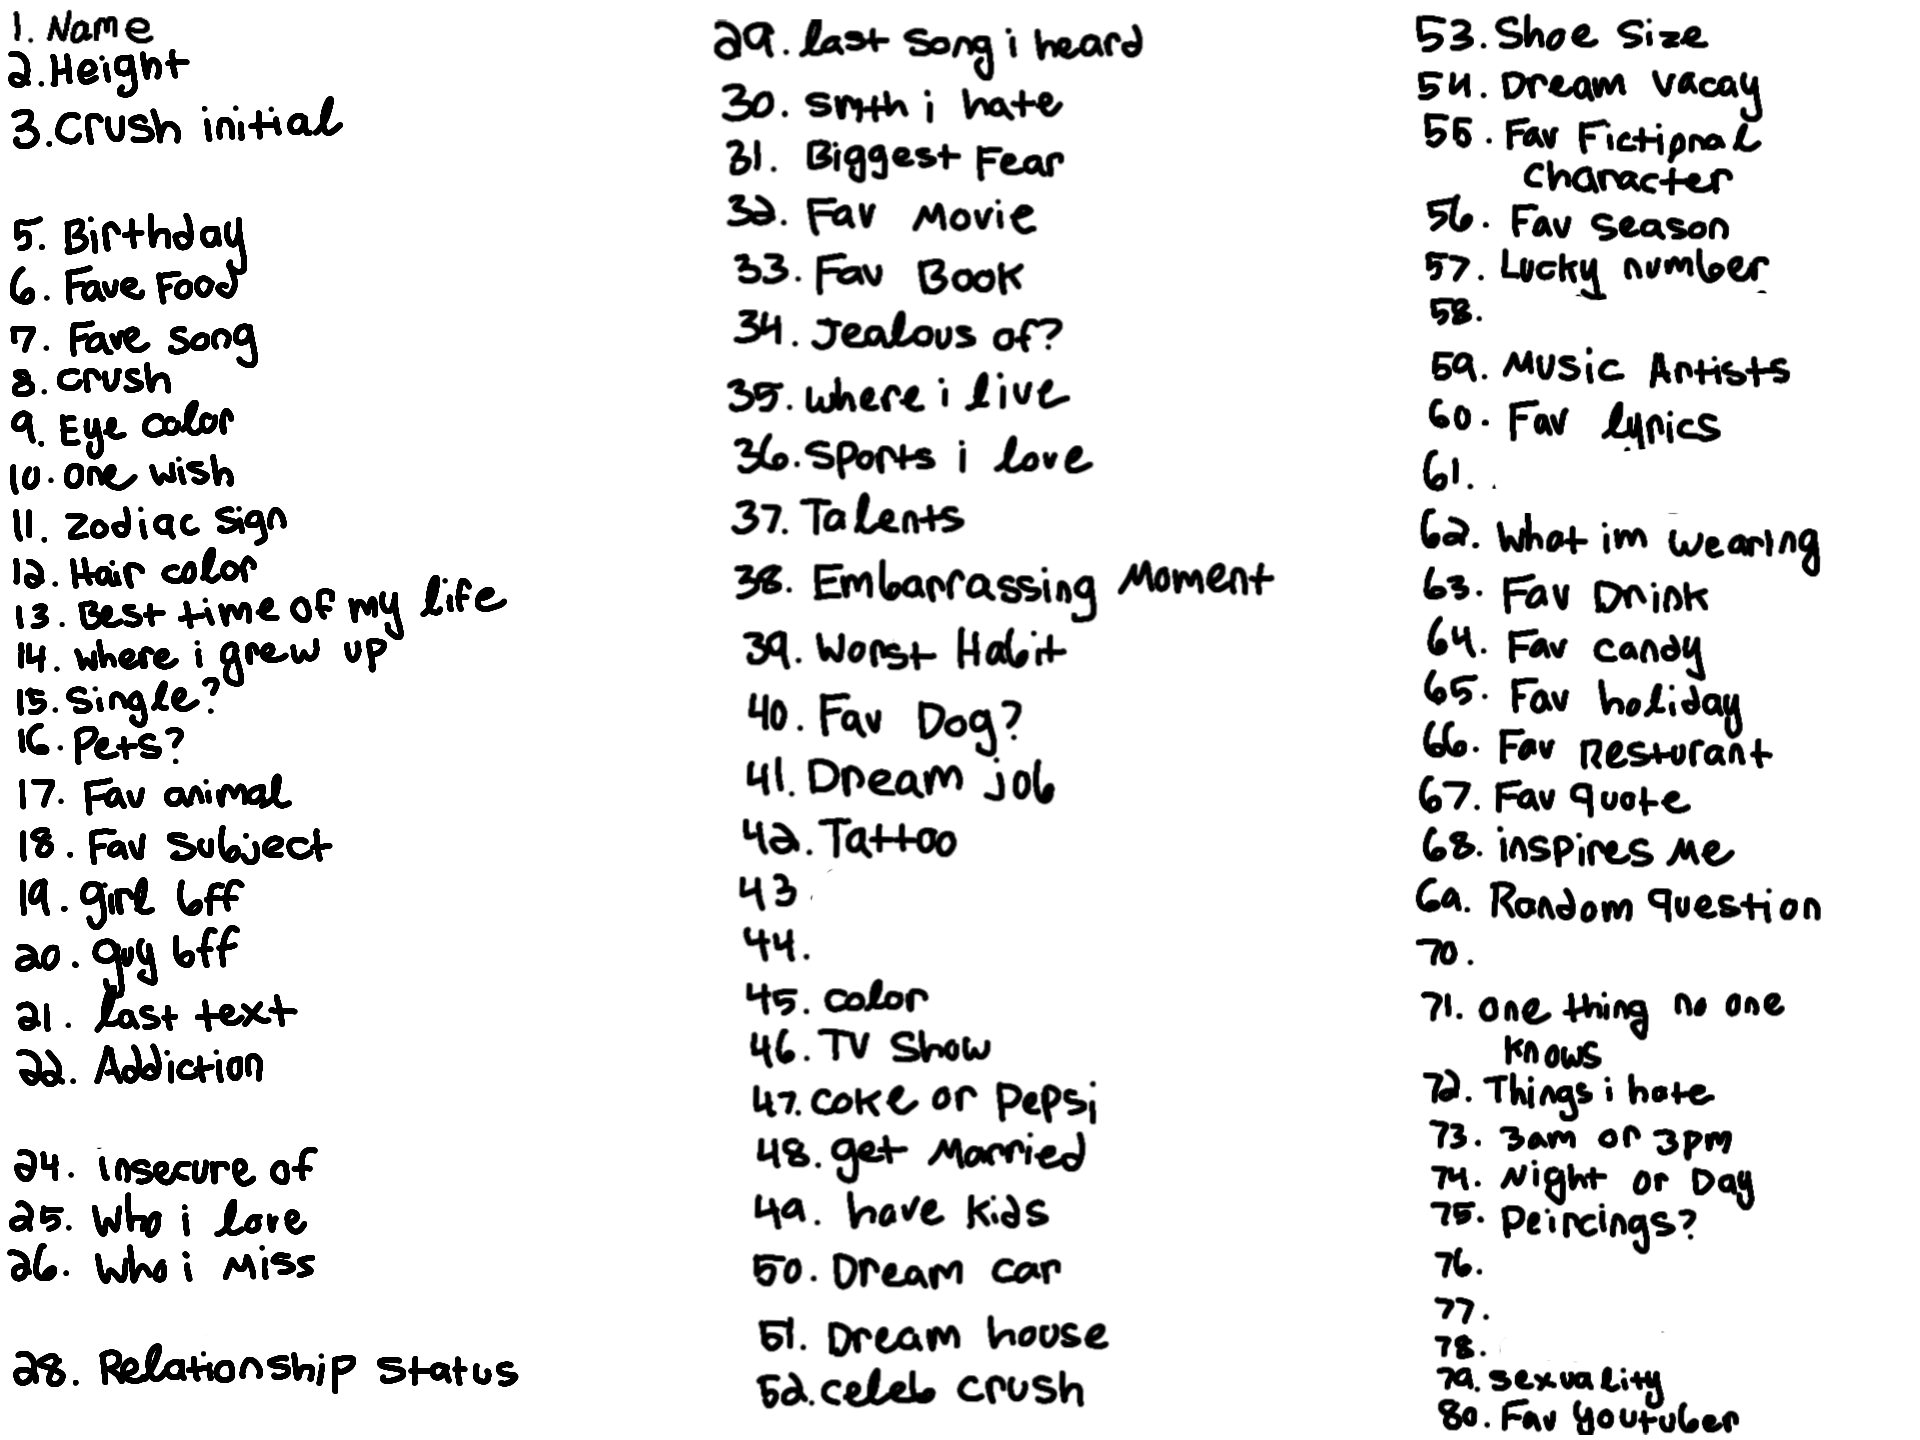 1. Name
2. Height
3. Crush initial
5. Birthday
6. Fave Food
7. Fave song
8. crush
9. Eye color
10. one wish
11. Zodiac sign
12. Hair color
13. Best time of my life
14. where i grew up
15. Single?
16. Pets?
17. Fav animal
18. Fav subject
19. girl bff
20. guy bff
21. last text
22. Addiction
24. insecure of
25. Who i love
26. Who i miss
28. Relationship status
29. last song i heard
30. smth i hate
31. Biggest Fear
32. Fav Movie
33. Fav Book
34. Jealous of?
35. where i live
36. Sports i love
37. Talents
38. Embarrassing Moment
39. Worst Habit
40. Fav Dog?
41. Dream job
42. Tattoo
43
44.
45. color
46. TV Show
47. coke or Pepsi
48. get Married
49. have kids
50. Dream car
51. Dream house
52. celeb crush
53. Shoe Size
54. Dream vacay
55. Fav Fictional
character
56. Fav season
57. Lucky number
58.
59. Music Artists
60. Fav lyrics
61.
62. What im wearing
63. Fav Drink
64. Fav candy
65. Fav holiday
66. Fav Resturant
67. Fav quote
68. inspires me
69. Random question
70.
71. one thing no one
knows
72. Things i hate
73. 3am or 3pm
74. Night or Day
75. Peircings?
76.
77.
78.
79. sexuality
80. Fav youtuber